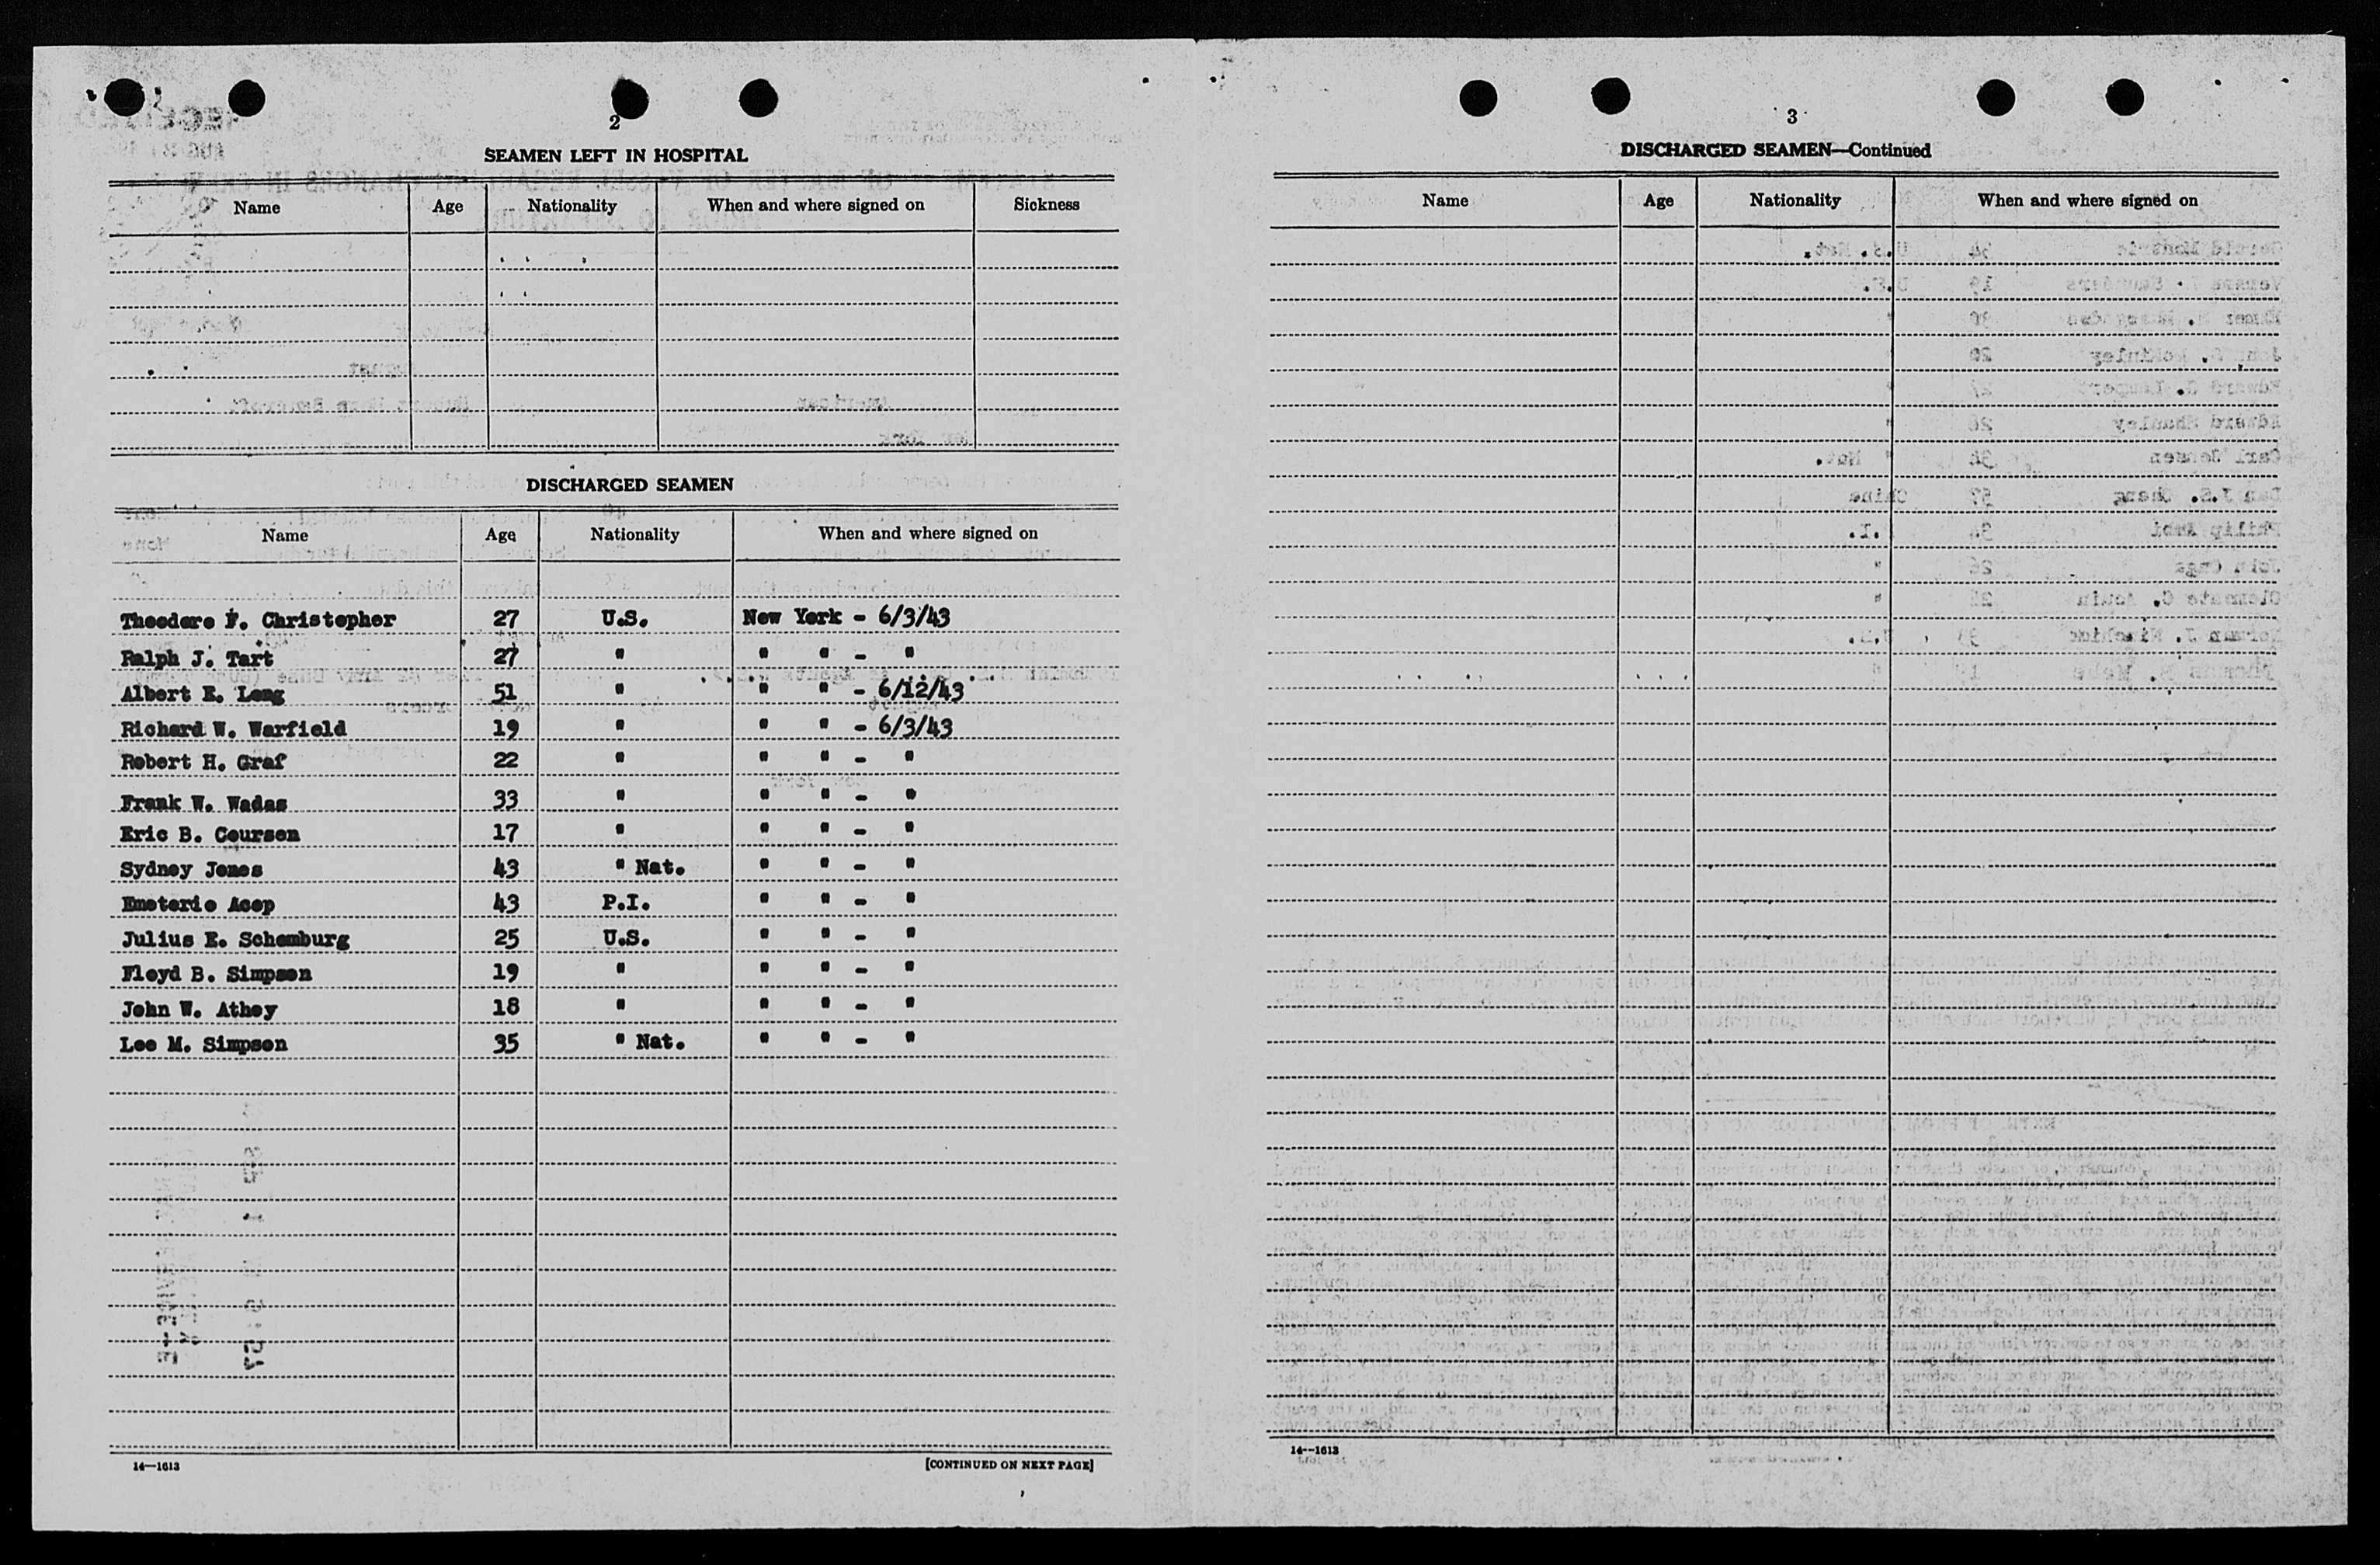 2
SEAMEN LEFT IN HOSPITAL
Name Age Nationality When and where signed on Sickness
DISCHARGED SEAMEN
Name Age Nationality When and where signed on
Theodore F. Christopher 27 U.S. New York - 6/3/43
Ralph J. Tart 27 " " " - "
Albert E. Long 51 " " " - 6/12/43
Richard W. Warfield 19 " " " - 6/3/43
Robert H. Graf 22 " " " - "
Frank W. Wadas 33 " " " - "
Eric B. Coursen 17 " " " - "
Sydney Jones 43 " Nat. " " - "
Emeterio Acop 43 P.I. " " - "
Julius E. Schomburg 25 U.S. " " - "
Floyd B. Simpson 19 " " " - "
John W. Athey 18 " " " - "
Lee M. Simpson 35 " Nat. " " - "
14—1613 [CONTINUED ON NEXT PAGE]
3
DISCHARGED SEAMEN—Continued
Name Age Nationality When and where signed on
14—1613